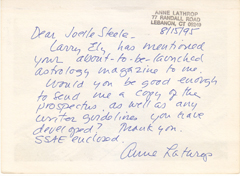 ANNE LATHROP
77 RANDALL ROAD
LEBANON, CT 06249
8/15/95
Dear Joelle Steele:
Larry Ely has mentioned
your about-to-be-launched
astrology magazine to me.
Would you be good enough
to send me a copy of the
prospectus, as well as any
writer guidelines you have
developed? Thank you.
SSAE enclosed.
Anne Lathrop